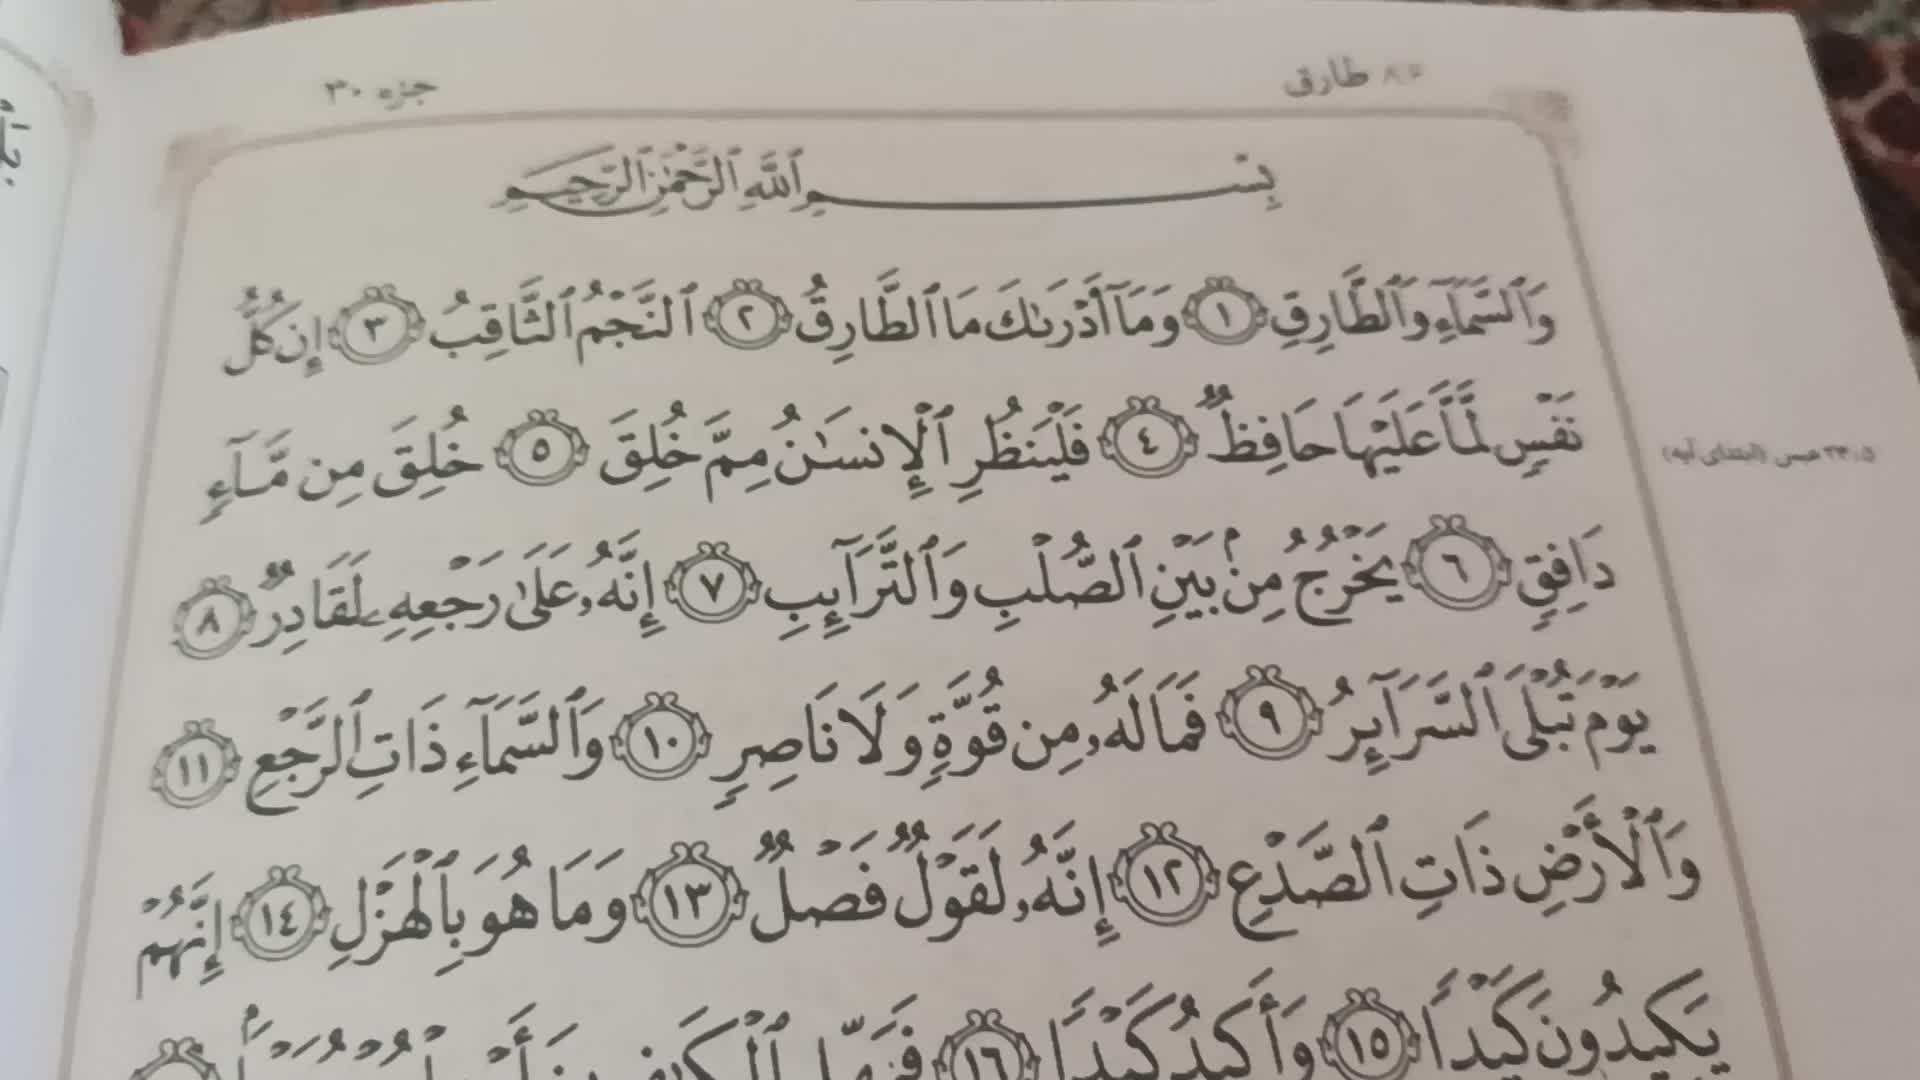 ۸۶ طارق
جزء ۳۰
بِسْمِ ٱللَّهِ ٱلرَّحْمَٰنِ ٱلرَّحِيمِ
وَٱلسَّمَآءِ وَٱلطَّارِقِ ١ وَمَآ أَدْرَىٰكَ مَا ٱلطَّارِقُ ٢ ٱلنَّجْمُ ٱلثَّاقِبُ ٣ إِن كُلُّ
نَفْسٍ لَّمَّا عَلَيْهَا حَافِظٌ ٤ فَلْيَنظُرِ ٱلْإِنسَٰنُ مِمَّ خُلِقَ ٥ خُلِقَ مِن مَّآءٍ
دَافِقٍ ٦ يَخْرُجُ مِنۢ بَيْنِ ٱلصُّلْبِ وَٱلتَّرَآئِبِ ٧ إِنَّهُۥ عَلَىٰ رَجْعِهِۦ لَقَادِرٌ ٨
يَوْمَ تُبْلَى ٱلسَّرَآئِرُ ٩ فَمَا لَهُۥ مِن قُوَّةٍ وَلَا نَاصِرٍ ١٠ وَٱلسَّمَآءِ ذَاتِ ٱلرَّجْعِ ١١
وَٱلْأَرْضِ ذَاتِ ٱلصَّدْعِ ١٢ إِنَّهُۥ لَقَوْلٌ فَصْلٌ ١٣ وَمَا هُوَ بِٱلْهَزْلِ ١٤ إِنَّهُمْ
يَكِيدُونَ كَيْدًا ١٥ وَأَكِيدُ كَيْدًا ١٦
۲۳:۵ عبس (ابتدای آیه)